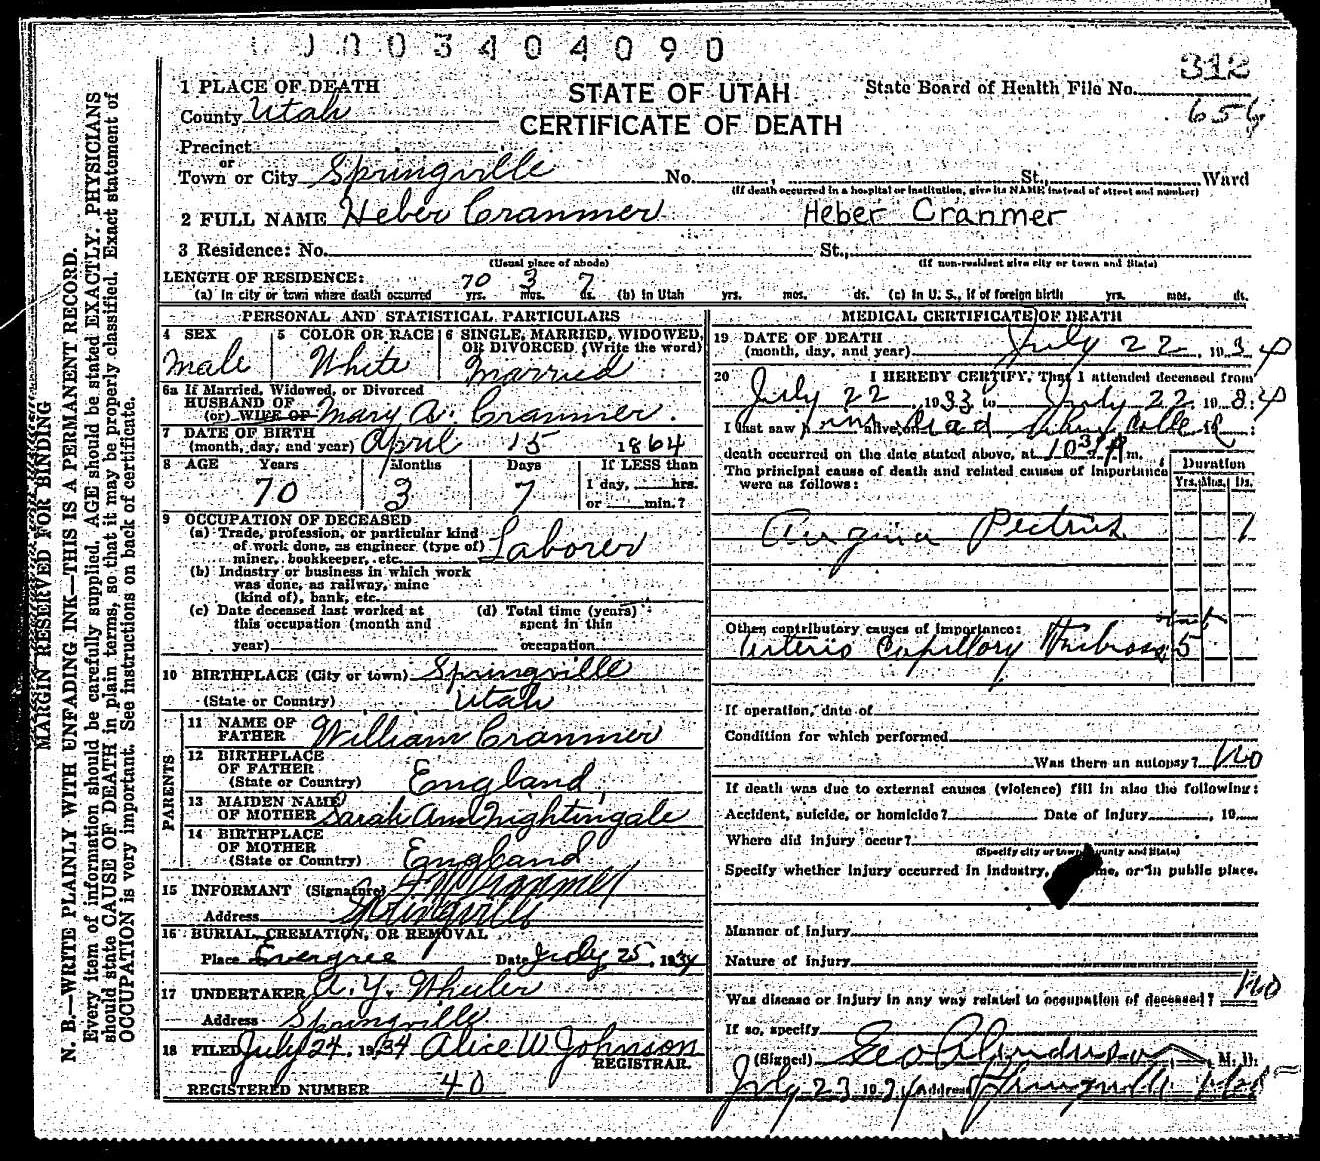 0003404090
312
1 PLACE OF DEATH
STATE OF UTAH
State Board of Health File No.
County Utah
656
CERTIFICATE OF DEATH
Precinct
or
Town or City Springville No. St., Ward
(If death occurred in a hospital or institution, give its NAME instead of street and number)
2 FULL NAME Heber Cranmer Heber Cranmer
3 Residence: No. St.,
(Usual place of abode) (If non-resident give city or town and State)
LENGTH OF RESIDENCE:
70 3 7
(a) In city or town where death occurred yrs. mos. ds. (b) In Utah yrs. mos. ds. (c) In U. S., if of foreign birth yrs. mos. ds.
PERSONAL AND STATISTICAL PARTICULARS
4 SEX 5 COLOR OR RACE 6 SINGLE, MARRIED, WIDOWED, OR DIVORCED (Write the word)
Male White Married
6a If Married, Widowed, or Divorced
HUSBAND OF
(or) WIFE OF Mary A. Cranmer.
7 DATE OF BIRTH
(month, day, and year) April 15 1864
8 AGE Years Months Days If LESS than
1 day, hrs.
70 3 7
or min.?
9 OCCUPATION OF DECEASED
(a) Trade, profession, or particular kind
of work done, as engineer (type of)
miner, bookkeeper, etc. Laborer
(b) Industry or business in which work
was done, as railway, mine
(kind of), bank, etc.
(c) Date deceased last worked at (d) Total time (years)
this occupation (month and spent in this
year) occupation.
10 BIRTHPLACE (City or town) Springville
(State or Country) Utah
PARENTS
11 NAME OF
FATHER William Cranmer
12 BIRTHPLACE
OF FATHER
(State or Country) England
13 MAIDEN NAME
OF MOTHER Sarah Ann Nightingale
14 BIRTHPLACE
OF MOTHER
(State or Country) England
15 INFORMANT (Signature) Cranmer
Address Springville
16 BURIAL, CREMATION, OR REMOVAL
Place Evergree Date July 25, 1934
17 UNDERTAKER A. Y. Wheeler
Address Springville
18 FILED July 24, 1934 Alice W Johnson
REGISTRAR.
REGISTERED NUMBER 40
MEDICAL CERTIFICATE OF DEATH
19 DATE OF DEATH
(month, day, and year) July 22, 1934
20 I HEREBY CERTIFY, That I attended deceased from
July 22, 1933 to July 22, 1934
I last saw him alive on dead
death occurred on the date stated above, at 10 m.
The principal cause of death and related causes of importance
were as follows:
Duration
Yrs. Mos. Ds.
Angina Pectris 1
Other contributory causes of importance:
Arterio Capillory 5
If operation, date of
Condition for which performed
Was there an autopsy? No
If death was due to external causes (violence) fill in also the following:
Accident, suicide, or homicide? Date of injury, 19
Where did injury occur?
(Specify city or town, county and State)
Specify whether injury occurred in industry, or in public place.
Manner of injury
Nature of injury
Was disease or injury in any way related to occupation of deceased? No
If so, specify
(Signed) Geo A Anderson M. D.
July 23 1934 Address Springville Utah
MARGIN RESERVED FOR BINDING
N. B.—WRITE PLAINLY WITH UNFADING INK—THIS IS A PERMANENT RECORD.
Every item of information should be carefully supplied. AGE should be stated EXACTLY. PHYSICIANS
should state CAUSE OF DEATH in plain terms, so that it may be properly classified. Exact statement of
OCCUPATION is very important. See instructions on back of certificate.